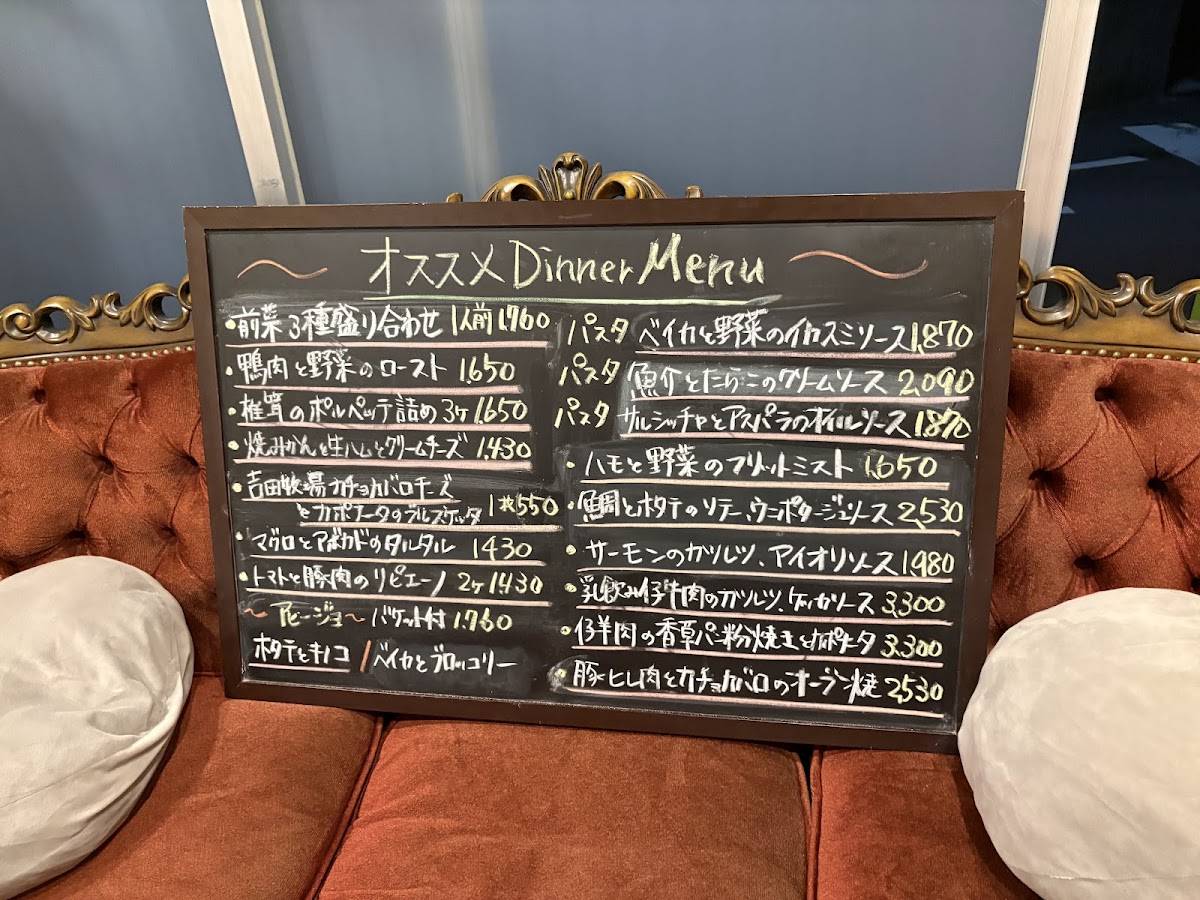 オススメ Dinner Menu
・前菜3種盛り合わせ 1人前 1,760
・鴨肉と野菜のロースト 1,650
・椎茸のポルペッテ詰め 3ケ 1,650
・焼みかんと生ハムとクリームチーズ 1,430
・吉田牧場カチョカバロチーズ
とカポナータのブルスケッタ 1枚 550
・マグロとアボカドのタルタル 1430
・トマトと豚肉のリピエーノ 2ケ 1,430
〜アヒージョ〜 バケット付 1,760
ホタテとキノコ / ベイカとブロッコリー
パスタ ベイカと野菜のイカスミソース 1,870
パスタ 魚介とたらこのクリームソース 2,090
パスタ サルシッチャとアスパラのオイルソース 1,870
・ハモと野菜のフリットミスト 1,650
・鯛とホタテのソテー、ウニポタージュソース 2,530
・サーモンのカツレツ、アイオリソース 1,980
・乳飲み仔牛肉のカツレツ、ケッカソース 3,300
・仔羊肉の香草パン粉焼きとカポナータ 3,300
・豚ヒレ肉とカチョカバロのオーブン焼 2,530